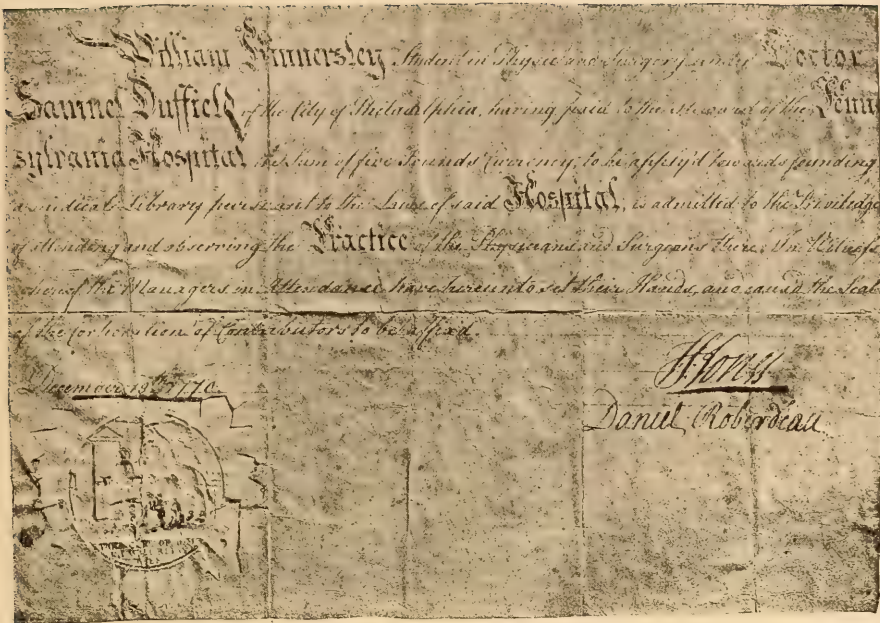 William Kinnersley Student in Physic and Surgery under Doctor
Samuel Duffield of the City of Philadelphia, having paid to the Steward of the Penn
sylvania Hospital the Sum of five Pounds Currency, to be apply'd towards founding
a medical Library persuant to the Laws of said Hospital, is admitted to the Priviledge
of attending and observing the Practice of the Physicians and Surgeons there. In Witness
whereof the Managers in Attendance have hereunto set their Hands, and caused the Seal
of the Corporation of Contributors to be affixed
December 19th 1770
H Jones
Daniel Roberdeau